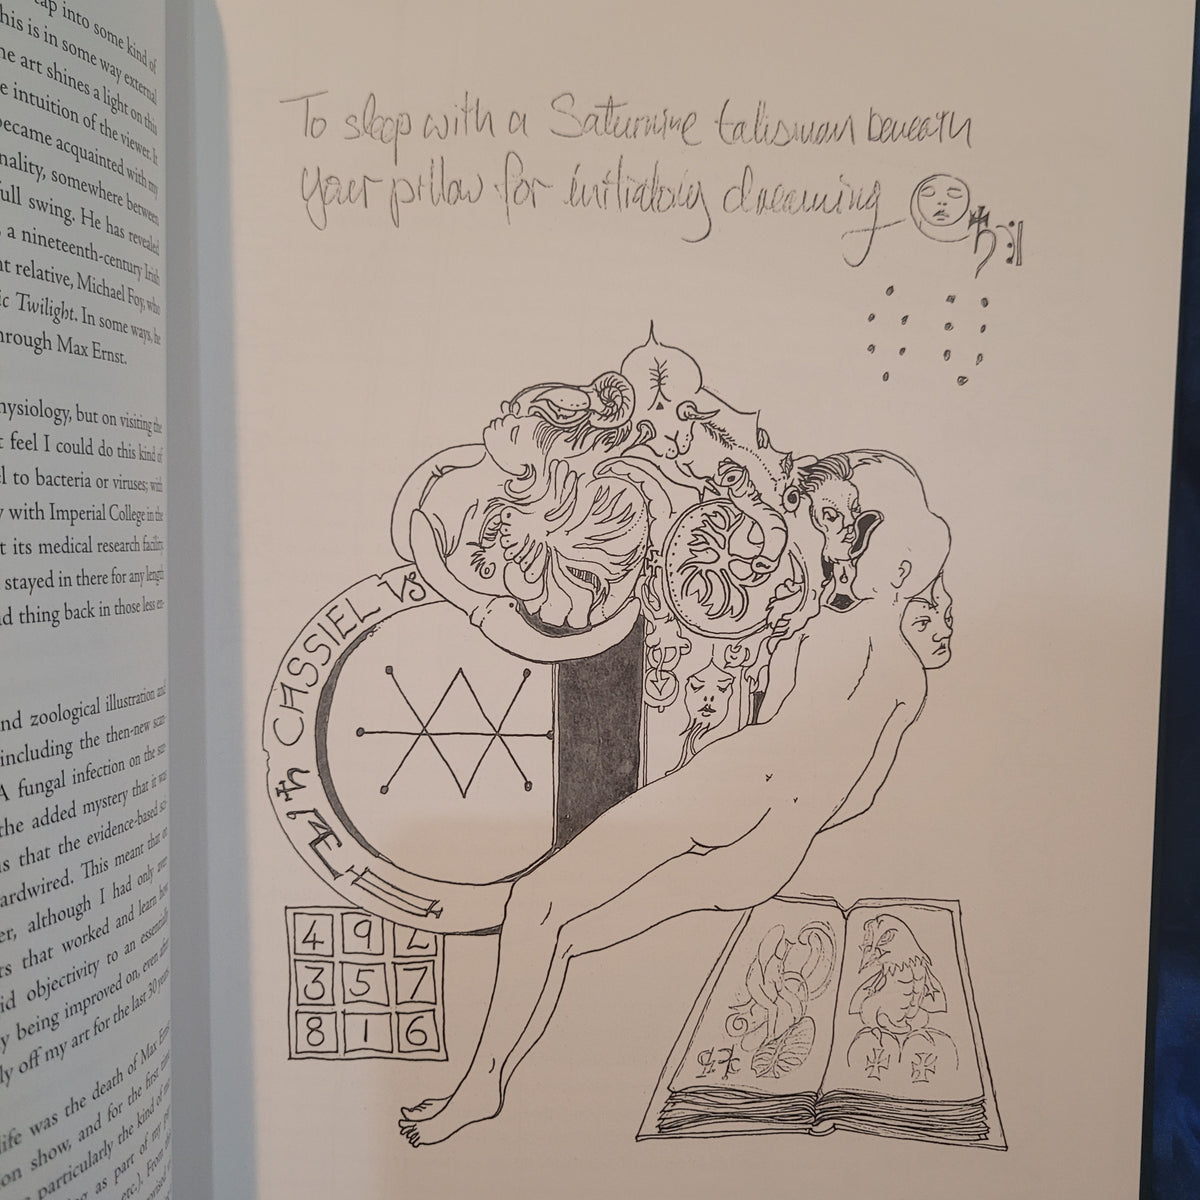 tap into some kind of
this is in some way external
the art shines a light on this
e intuition of the viewer. It
became acquainted with my
nality, somewhere between
full swing. He has revealed
a nineteenth-century Irish
nt relative, Michael Foy, who
ic Twilight. In some ways, he
hrough Max Ernst.
hysiology, but on visiting the
t feel I could do this kind of
el to bacteria or viruses; with
y with Imperial College in the
t its medical research facility.
stayed in there for any length
d thing back in those less en-
nd zoological illustration and
including the then-new scan-
A fungal infection on the
the added mystery that it was
s that the evidence-based
ardwired. This meant that
er, although I had only ever
ts that worked and learn how
id objectivity to an essentially
y being improved on, even after
ly off my art for the last 30 years
life was the death of Max Ernst
ion show, and for the first time
particularly the kind of
as part of my
etc.). From
To sleep with a Saturnine talisman beneath
your pillow for initiatory dreaming
♄
CASSIEL
♄
4 9 2
3 5 7
8 1 6